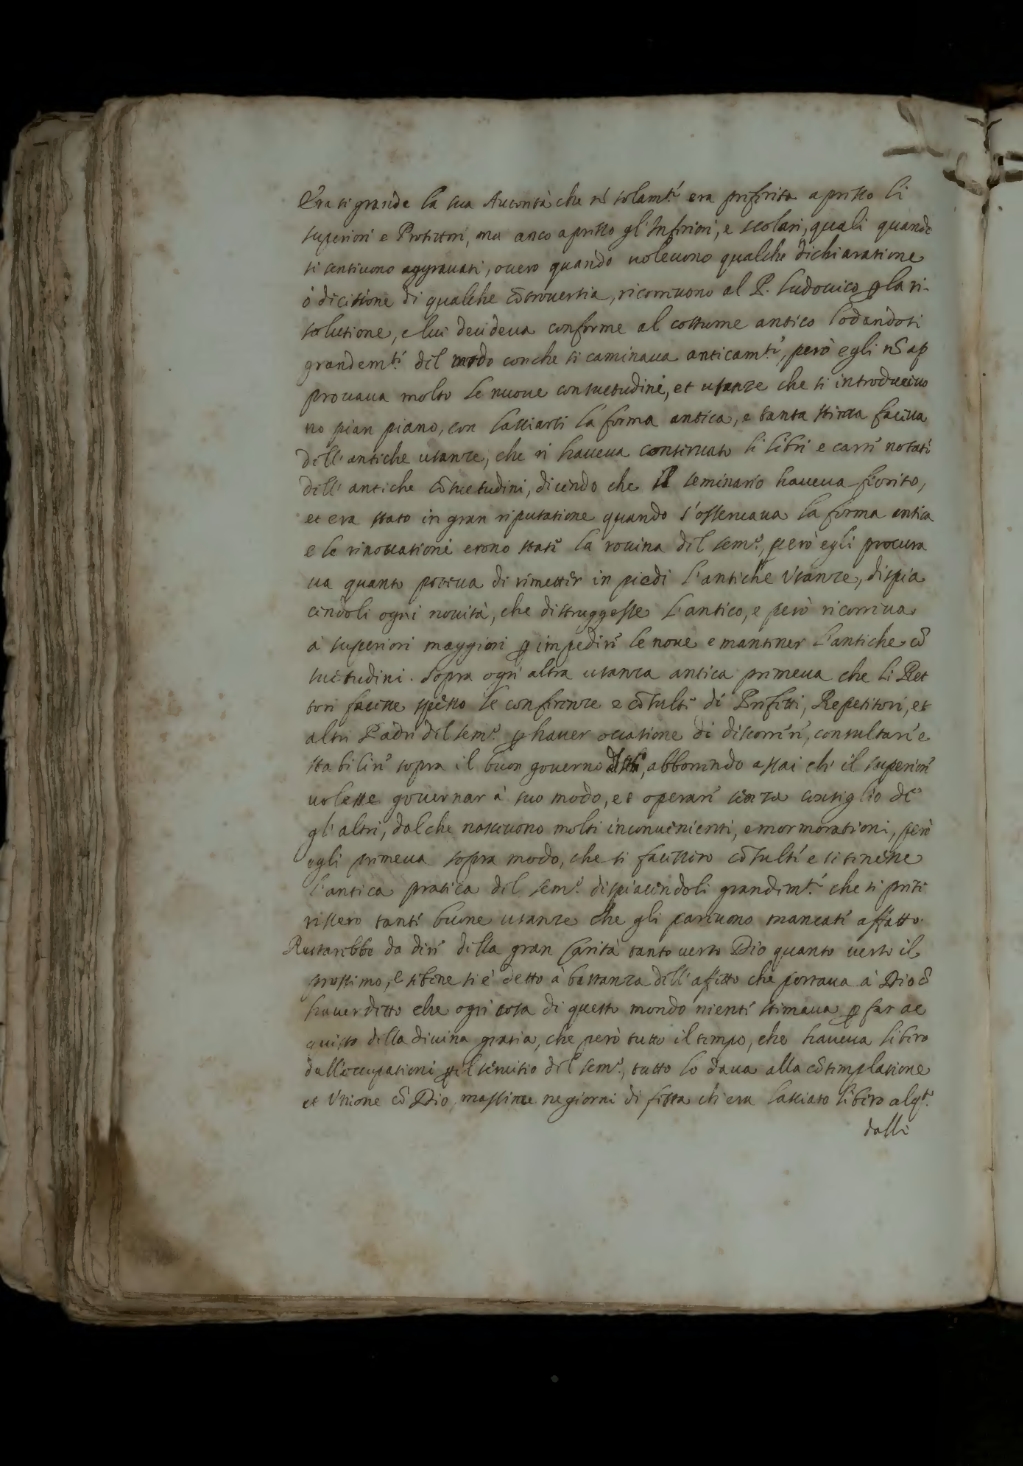 Era si grande la sua Autorità che nō solamte. era preferita apresso li
superiori e Protettori, ma anco apresso gl'Inferiori, e scolari, quali quando
si sentivono aggravati, overo quando volevono qualche dichiaratione
ò dicisione di qualche cōtroversia, ricorrivono al P. Ludovico ꝑ la ri-
solutione, e lui decideva conforme al costume antico lodandosi
grandemte. del modo con che si caminava anticamte, però egli nō ap
provava molto le nuove consuetudini, et usanze che si introducevo
no pian piano, con lassiarsi la forma antica, e tanta stima faceva
dell'antiche usanze, che si haveva conservato li libri e carte notati
dell'antiche cōsuetudini, dicendo che il seminario haveva fiorito,
et era stato in gran riputatione quando s'osservava la forma antica
e le rinovationi erono state la rovina del sem.o, però egli procura
va quanto poteva di rimetter in piedi l'antiche Usanze, dispia
cendoli ogni novità, che distruggesse l'antico, e però ricorreva
à superiori maggiori ꝑ impedire le nove e mantener l'antiche cō
suetudini. Sopra ogni altra usanza antica premeva che li Ret
tori facesse spesso le conferenze e cōsulte di Prefetti, Repetitori, et
altri Padri del sem.o ꝑ haver occasione di discorrere, consultare e
stabilire sopra il buon governo abborrendo assai che il superiore
volesse governar à suo modo, et operare senza consiglio de
gl'altri, dal che nascevono molti inconvenienti, e mormorationi, però
egli premeva sopra modo, che si facessero cōsulte e si tenesse
l'antica pratica del sem.o dispiacendoli grandemte. che si prete
rissero tante buone usanze che gli parevono mancate affatto.
Restarebbe da dire della gran Carità tanto verso Dio quanto verso il
prossimo, e sebene si è detto à bastanza dell'affetto che portava à Dio cō
haver detto che ogni cosa di questo mondo niente stimava ꝑ far ac
quisto della divina gratia, che però tutto il tempo, che haveva libero
dall'occupationi ꝑ il servitio del sem.o, tutto lo dava alla cōtemplatione
et Unione cō Dio, massime ne giorni di festa ch'era lassiato libero alqto.
dalle